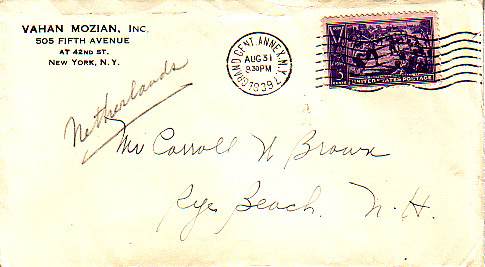 VAHAN MOZIAN, INC.
505 FIFTH AVENUE
AT 42ND ST.
NEW YORK, N.Y.
GRAND CENT. ANNEX, N.Y.
AUG 31
8 30 PM
1939
3 CENTS
UNITED STATES POSTAGE
Netherlands
Mr Carroll N Brown
Rye Beach. N. H.